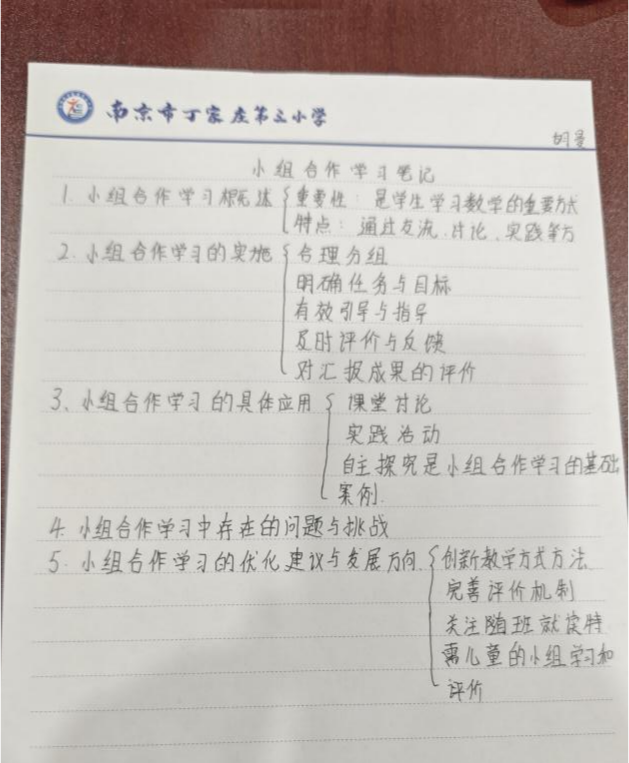 南京市丁家庄第三小学
胡曼
小组合作学习笔记
1. 小组合作学习概述 重要性：是学生学习数学的重要方式
特点：通过交流、讨论、实践等方
2. 小组合作学习的实施 合理分组
明确任务与目标
有效引导与指导
及时评价与反馈
对汇报成果的评价
3、小组合作学习的具体应用 课堂讨论
实践活动
自主探究是小组合作学习的基础
案例.
4. 小组合作学习中存在的问题与挑战
5. 小组合作学习的优化建议与发展方向 创新教学方式方法
完善评价机制
关注随班就读特
需儿童的小组学习和
评价